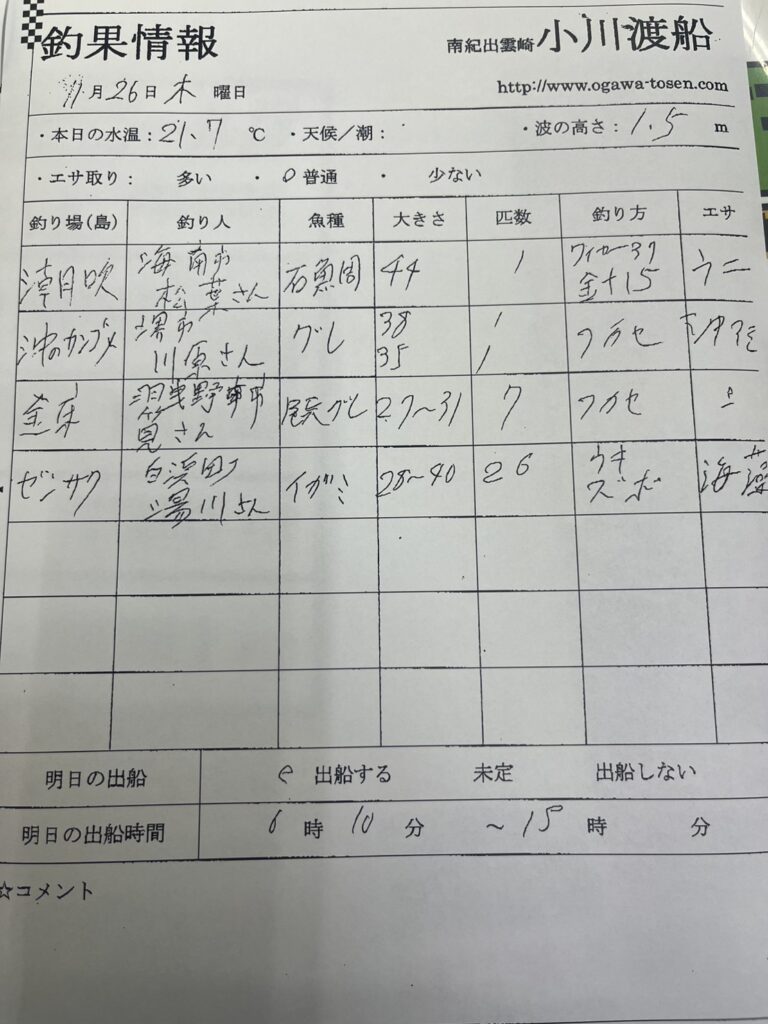 釣果情報
南紀出雲崎 小川渡船
11月26日 木 曜日
http://www.ogawa-tosen.com
・本日の水温：21.7 ℃ ・天候／潮： ・波の高さ：1.5 m
・エサ取り： 多い ・ 0 普通 ・ 少ない
釣り場(島) 釣り人 魚種 大きさ 匹数 釣り方 エサ
海南市 松葉さん 44 1 ワイヤー37 ウニ
沖のカンヅメ 堺市 川原さん グレ 38 1 フカセ オキアミ
35 1
羽曳野市 筧さん 尾長グレ 27〜31 7 フカセ
ゼンサク 白浜町 湯川さん イガミ 28〜40 26 ウキ 海藻
ズボ
明日の出船 出船する 未定 出船しない
明日の出船時間 6 時 10 分 〜15 時 分
☆コメント